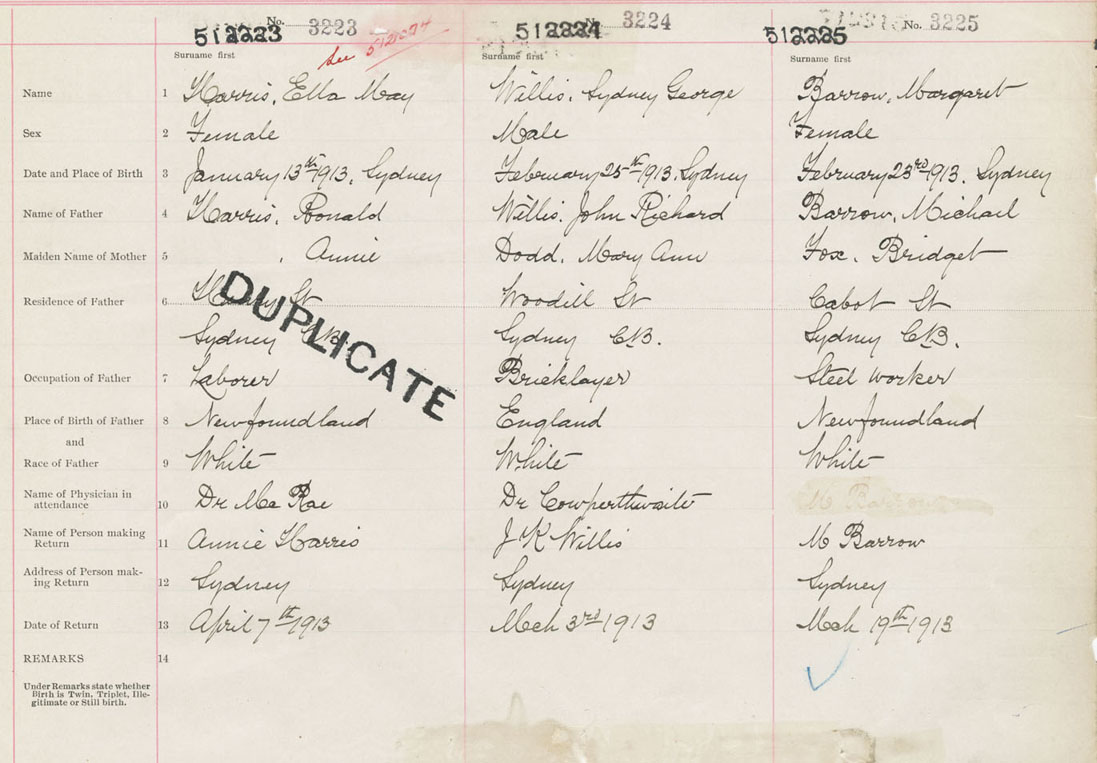 No. 3223 No. 3224 No. 3225
512223 512224 512225
See 512074
Surname first Surname first Surname first
Name 1 Harris, Ella May Willis, Sydney George Barrow, Margaret
Sex 2 Female Male Female
Date and Place of Birth 3 January 13th 1913, Sydney February 25th 1913, Sydney February 23rd 1913. Sydney
Name of Father 4 Harris, Ronald Willis, John Richard Barrow, Michail
Maiden Name of Mother 5 , Annie Dodd, Mary Ann Fox, Bridget
Residence of Father 6 St Woodill St Cabot St
Sydney C.B. Sydney C.B. Sydney C.B.
DUPLICATE
Occupation of Father 7 Laborer Bricklayer Steel Worker
Place of Birth of Father 8 Newfoundland England Newfoundland
and
Race of Father 9 White White White
Name of Physician in
attendance 10 Dr Mc Rae Dr Cowperthwaite M Barrow
Name of Person making
Return 11 Annie Harris J K Willis M Barrow
Address of Person mak-
ing Return 12 Sydney Sydney Sydney
Date of Return 13 April 7th 1913 Mch 3rd 1913 Mch 19th 1913
REMARKS 14
Under Remarks state whether
Birth is Twin, Triplet, Ille-
gitimate or Still birth.